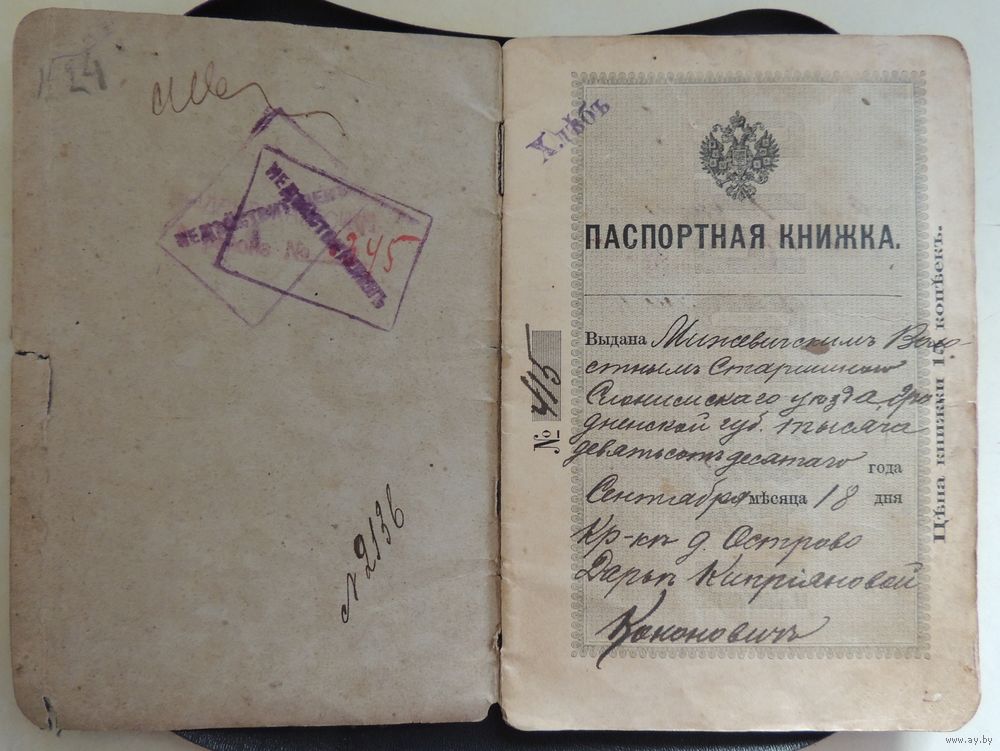 № 2136
НЕДѢЙСТВИТЕЛЕНЪ
НЕДѢЙСТВИТЕЛЕНЪ
№ 245
Хлѣбъ
ПАСПОРТНАЯ КНИЖКА.
№ 415
Выдана Мижевичскимъ Воло-
стнымъ Старшиною
Слонимскаго уѣзда, Гро-
дненской губ. тысяча
девятьсотъ десятаго года
Сентября мѣсяца 18 дня
Кр-кѣ д. Острово
Дарьѣ Кипріяновой
Кононовичъ
Цѣна книжки 15 копѣекъ.
www.ay.by